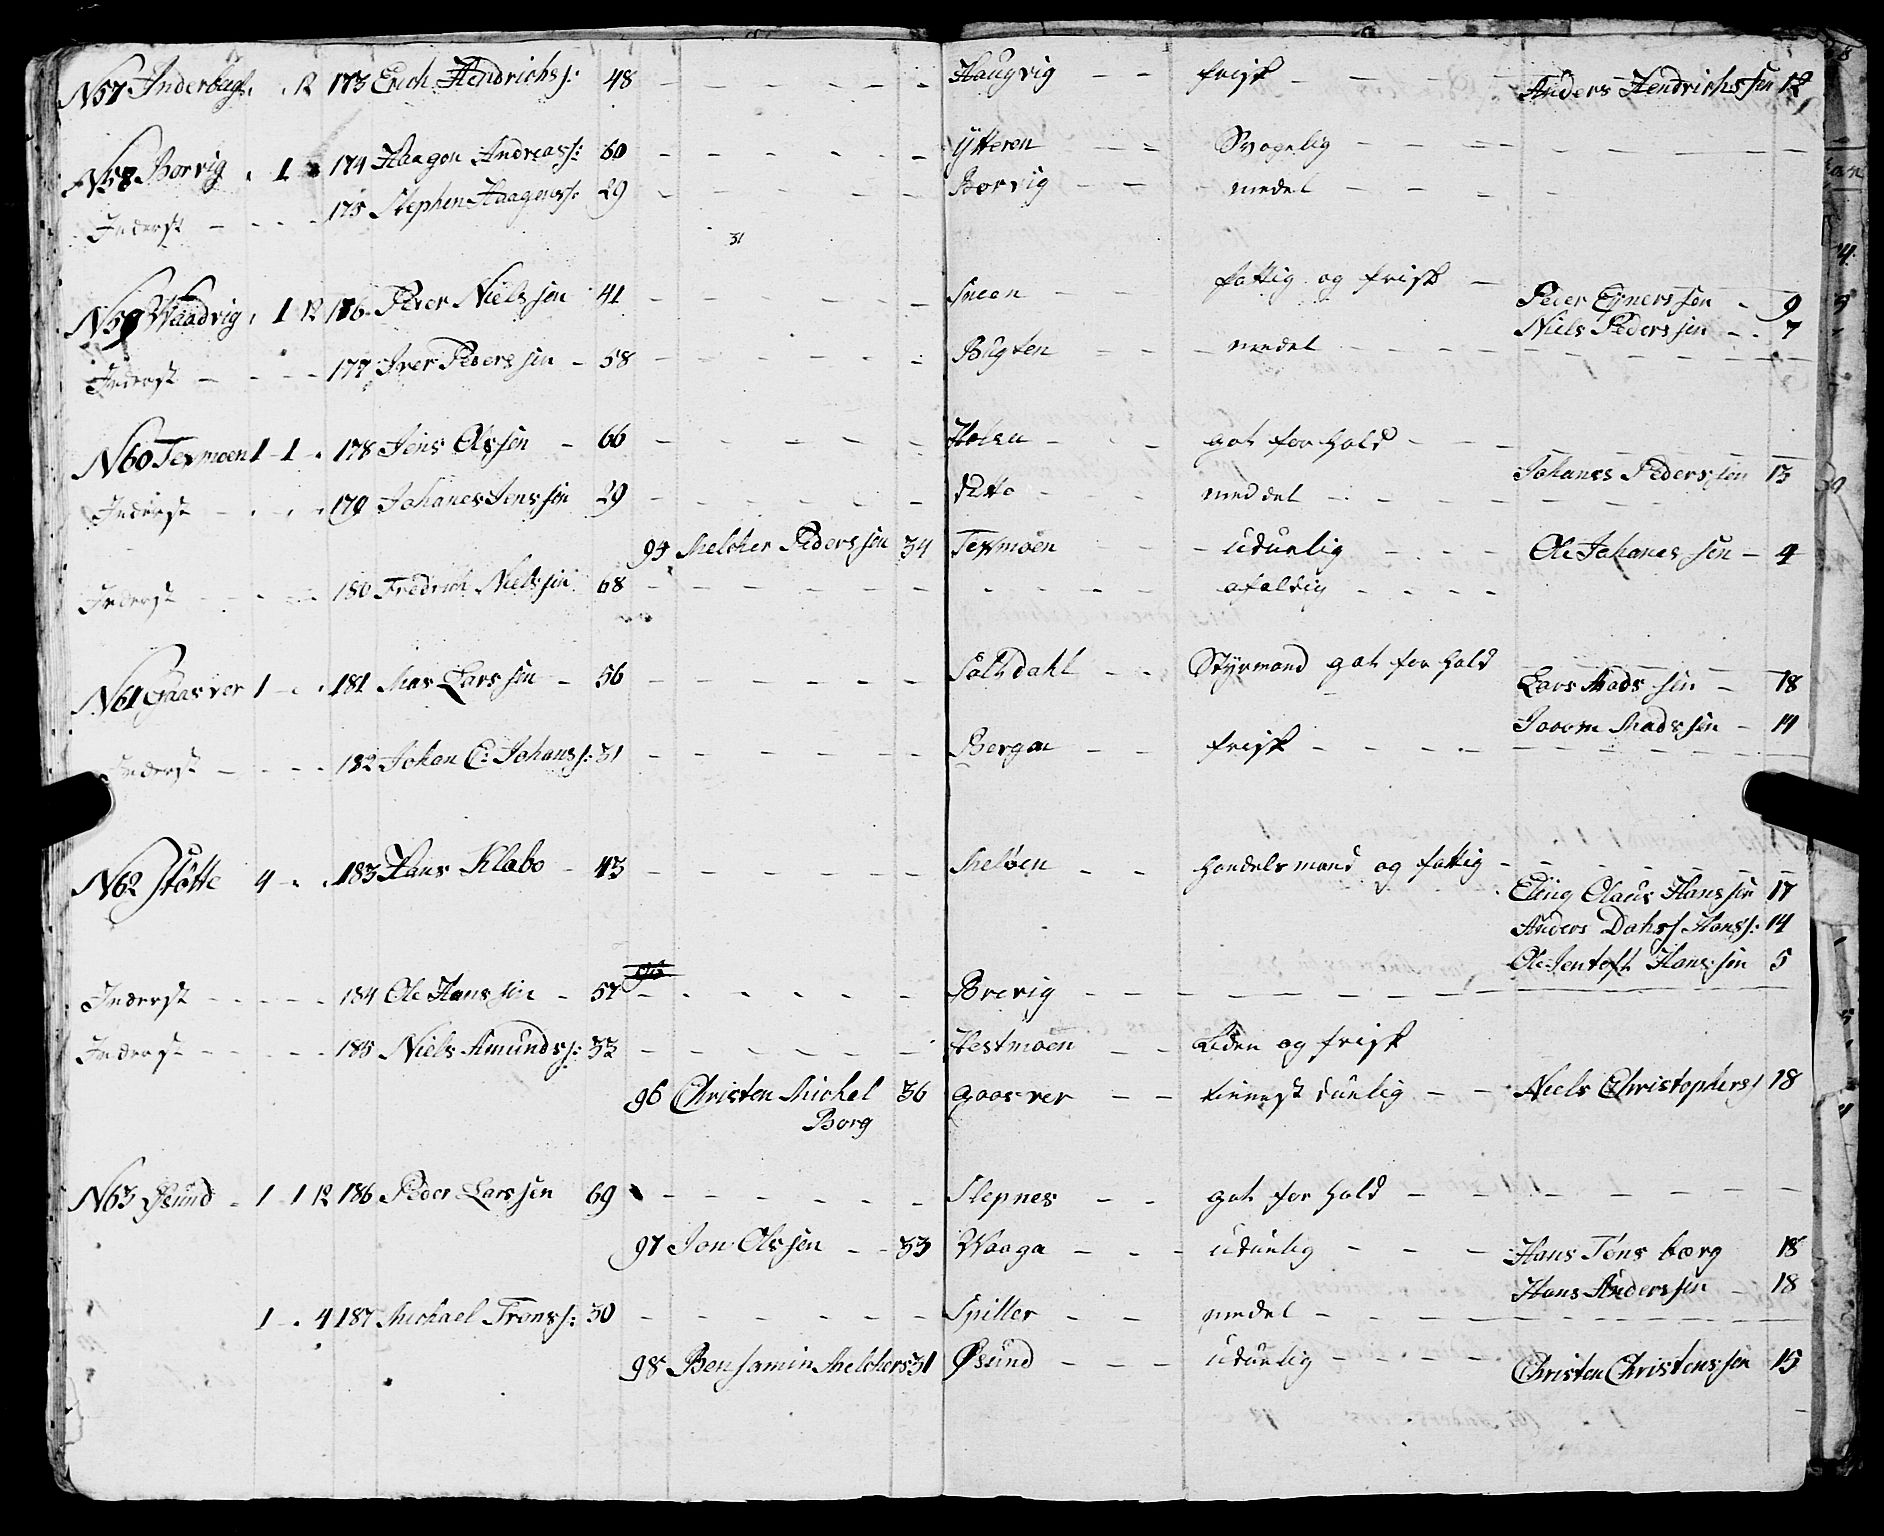 N57 Inderbugt . 12 173 Erich Hendrichs: 48 Haugvig frisk Anders Hendrichssen 12
N58 Borvig . 1 174 Haagon Andreass: 60 Ytteren Svagelig
Inderst 175 Stephen Haagenss: 29 Borvig medel
31
N59 Waadvig . 1 12 176 Peter Nielssen 41 fattig og frisk
Peter Ejnerssen 9
Niels Pederssen 7
Inderst 177 Iver Pederssen 58 Bugten medel
N60 Texmoen 1 1 178 Jens Olssen 66 gat forhold
Johanes Pederssen 13
Inderst 179 Johanes Jenssen 29 ditto meddel
94 Melcher Pederssen 34 Texmoen uduelig Ole Johanessen 4
Inderst 180 Fredrich Nielssen 68 afeldig
N61 Gaasver 1 181 Mas Larssen 56 Saltdahl Styrmand gat forhold
Lars Madssen 18
Madssen 14
Inderst 182 Johan C: Johanss: 31 Bergen frisk
N62 Støtte 4 183 Hans Klabo 43 Meløen handelsmand og fattig
Eling Olaus Hanssen 17
Anders Dahss Hanss: 14
Ole Jentoft Hanssen 5
96
Inderst 184 Ole Hanssen 57 Brevig
Inderst 185 Niels Amundss: 33 Hestmoen Liden og frisk
96 Christen Michel 36 Gaasver duelig Niels Christophers 18
Borg
N63 Øsund 1 1 12 186 Peder Larssen 69 Stepnes gat forhold
97 Jon Olssen 33 Waaga uduelig Hans Tønsberg 18
Hans Anderssen 18
1 4 187 Michael Transs: 30 Spilder medel
98 Benjamin Melchers 31 Øsund uduelig Christen Christenssen 15